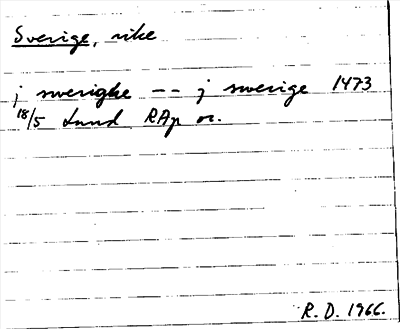 Sverige, rike
j swerighe -- j swerige 1473
18/5 Lund RAp or.
R. D. 1966.